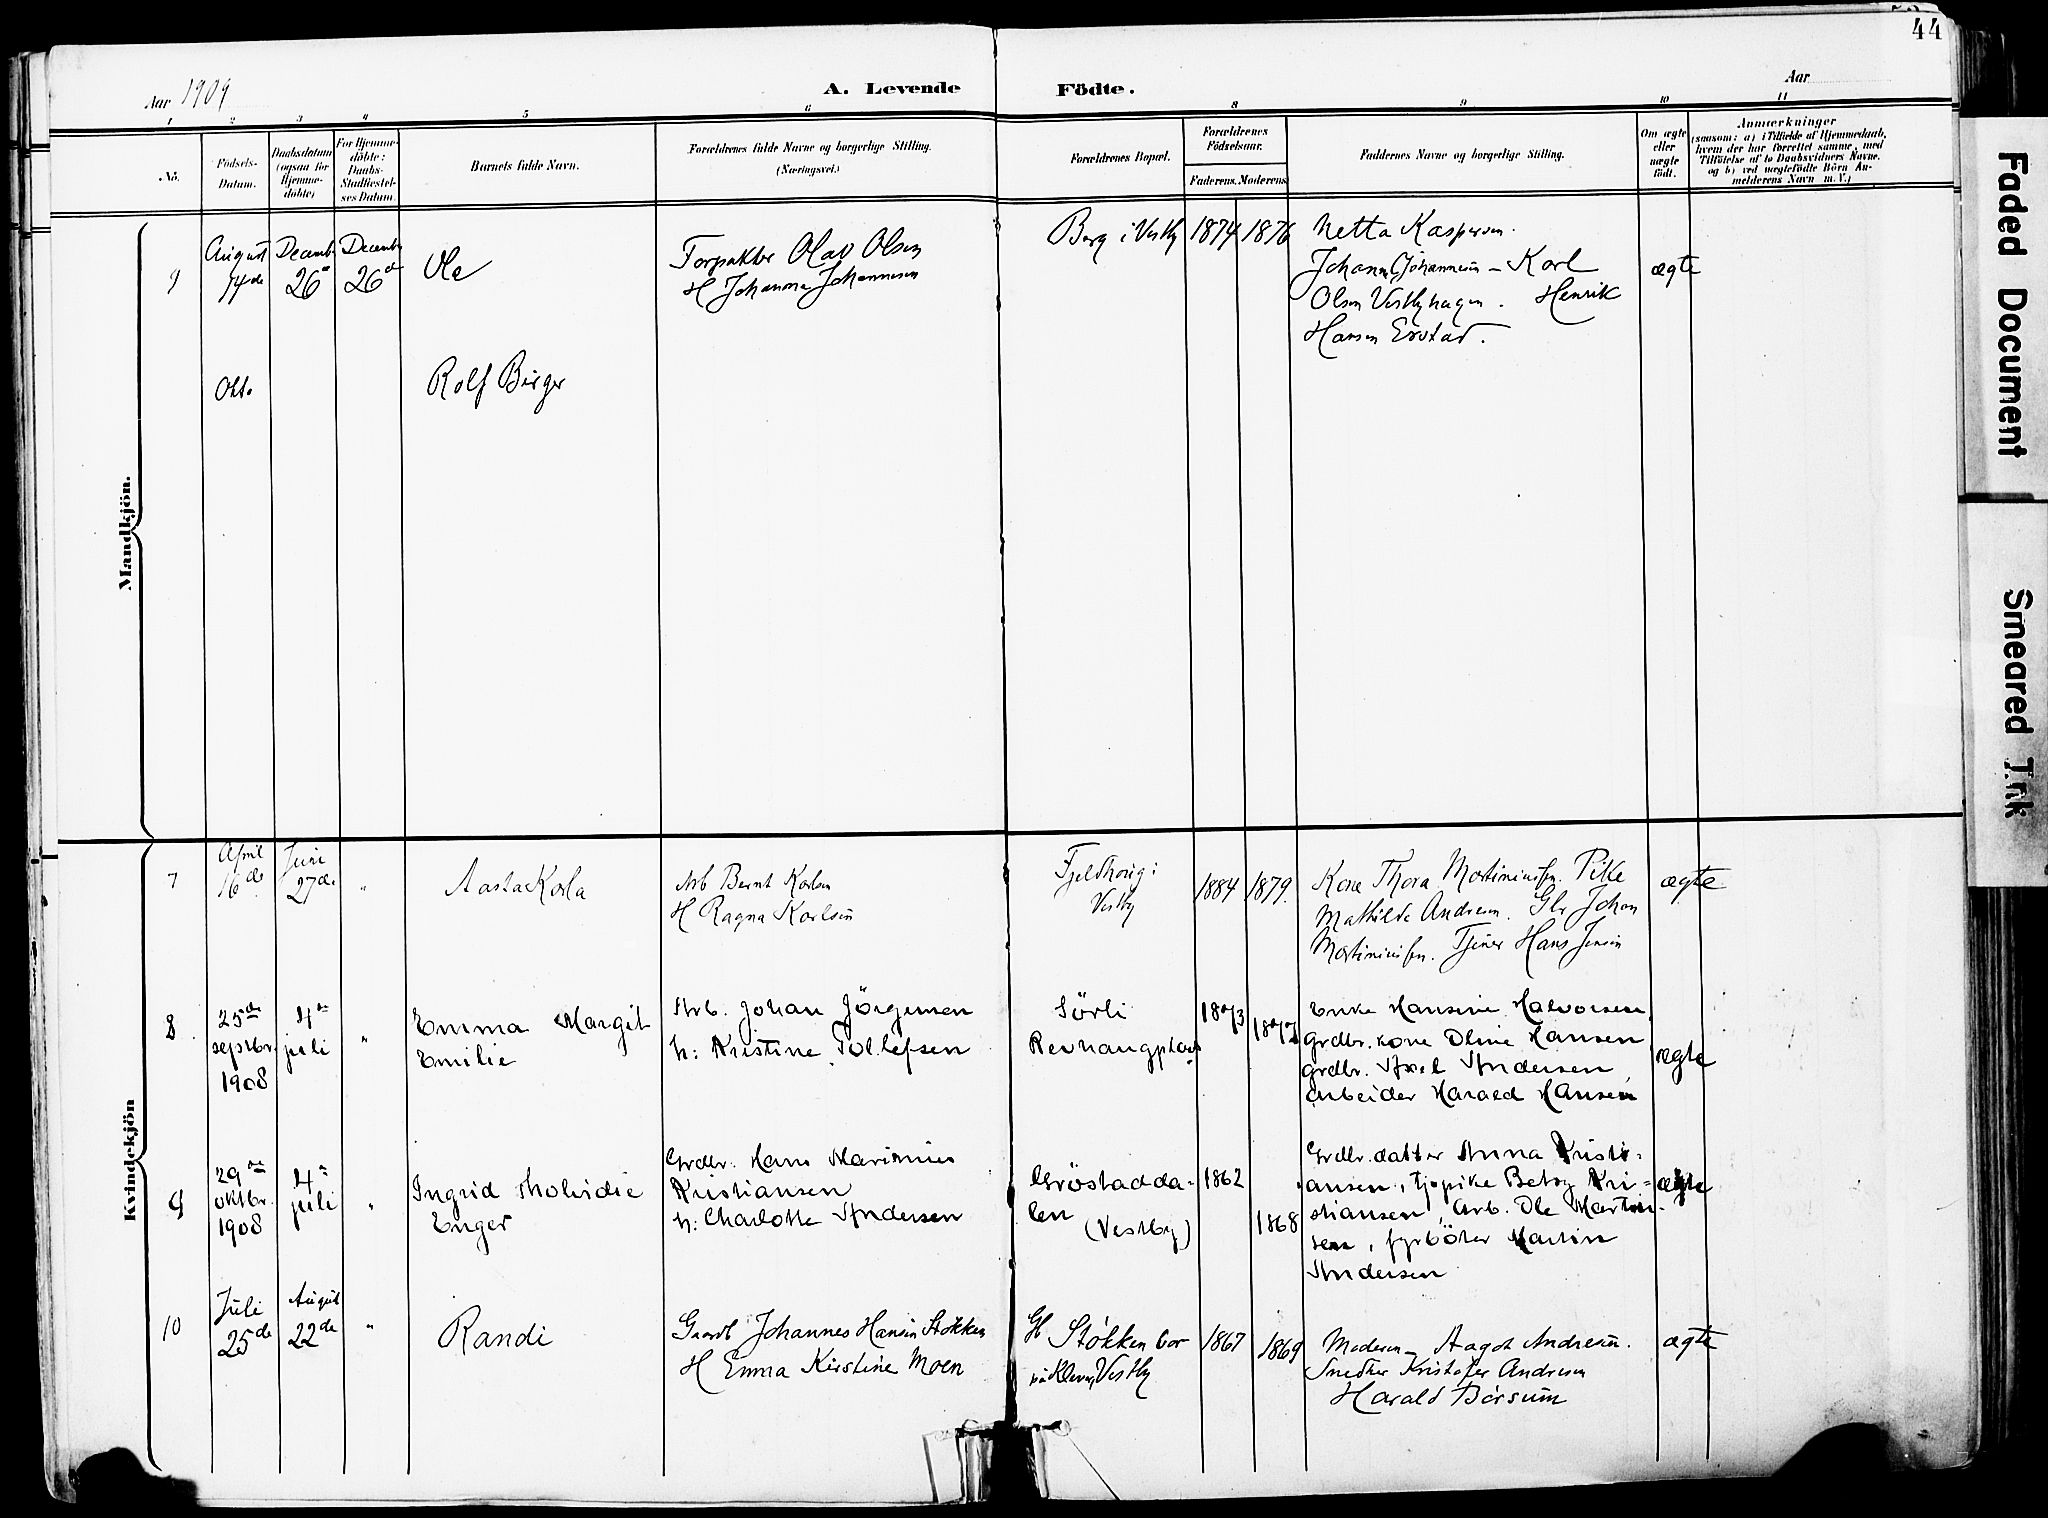 44
Aar 1909
A. Levende Födte.
Aar
1 2 3 4 5 6 8 9 10 11
No.
Födsels-
Datum.
Daabsdatum
(ogsaa for
Hjemme-
döbte)
For Hjemme-
döbte:
Daabs-
Stadfæstel-
ses Datum.
Barnets fulde Navn.
Forældrenes fulde Navne og borgerlige Stilling.
(Næringsvei.)
Forældrenes Bopæl.
Forældrenes
Födselsaar.
Faderens. Moderens.
Faddernes Navne og borgerlige Stilling.
Om ægte
eller
uægte
födt.
Anmærkninger
(saasom: a) i Tilfælde af Hjemmedaab,
hvem der har forrettet samme, med
Tilföielse af to Daabsvidners Navne.
og b) ved uægtefödte Börn An-
melderens Navn m. V.)
Mandkjön.
9
August
14de
Decemb
26de
Decemb
26de
Ole
Olav Olsen
H Johanna Johannesen
Berg i Vestby
1874
1876
Netta Kaspersen.
Johannesen - Karl
Olsen Vestbyhagen. Henrik
Hansen Erstad.
ægte
Okto
Rolf Birger
Kvindekjön
7
April
16de
Juni
27de
"
Aasta Karla
Arb Bernt Karlsen
H Ragna Karlsen
Vestby
1884
1879.
Kone Thora Martiniusen. Pike
Mathilde Andresen. Gbr Johan
Martiniusen. Tjener Hans Jensen
ægte
8
25de
septbr.
1908
4de
juli
"
Emma Margit
Emilie
Arb. Johan Jörgensen
h: Kristine Tollefsen
Sörli
Revhaugplads
1873
Enke Hansine Halvorsen,
grdbr. kone Oline Hansen
grdbr. Axel Andersen,
arbeider Harald Hansen
ægte
9
29de
oktbr.
1908
4de
juli
"
Ingrid Mohidie
Enger
Grdbr. Hans Marinius
Kristiansen
h: Charlotte Andersen
Gröstadda-
len
(Vestby)
1862
1868
Grdbr.datter Anna Kristi-
ansen, tjpike Betsy Kri-
stiansen, arb. Ole Martin-
sen, fyrböter Martin
Andersen
ægte
10
Juli
25de
August
22de
"
Randi
Gaardb Johannes Hansen Stökken
H Emma Kirstine Moen
Stökken bor
Vestby
1867
1869
Moderen - Aagot Andresen.
Snedker Kristofer Andresen
Harald Börsum
ægte
Faded Document
Smeared Ink